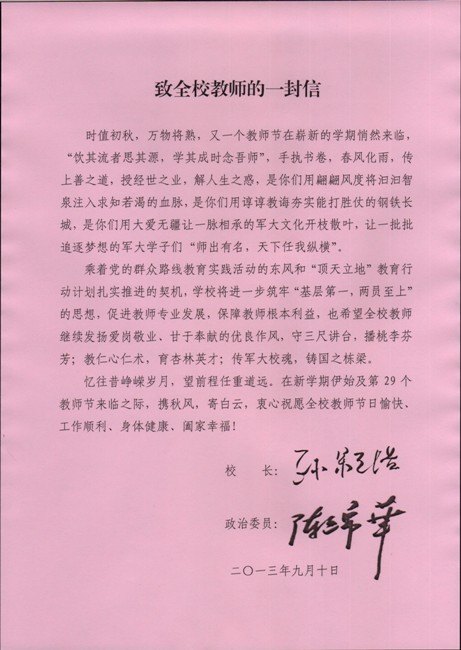 致全校教师的一封信
时值初秋，万物将熟，又一个教师节在崭新的学期悄然来临，
“饮其流者思其源，学其成时念吾师”，手执书卷，春风化雨，传
上善之道，授经世之业，解人生之惑，是你们用翩翩风度将汩汩智
泉注入求知若渴的血脉，是你们用谆谆教诲夯实能打胜仗的钢铁长
城，是你们用大爱无疆让一脉相承的军大文化开枝散叶，让一批批
追逐梦想的军大学子们“师出有名，天下任我纵横”。
乘着党的群众路线教育实践活动的东风和“顶天立地”教育行
动计划扎实推进的契机，学校将进一步筑牢“基层第一，两员至上”
的思想，促进教师专业发展，保障教师根本利益，也希望全校教师
继续发扬爱岗敬业、甘于奉献的优良作风，守三尺讲台，播桃李芬
芳；教仁心仁术，育杏林英才；传军大校魂，铸国之栋梁。
忆往昔峥嵘岁月，望前程任重道远。在新学期伊始及第 29 个
教师节来临之际，携秋风，寄白云，衷心祝愿全校教师节日愉快、
工作顺利、身体健康、阖家幸福！
校 长：
政治委员：
二〇一三年九月十日